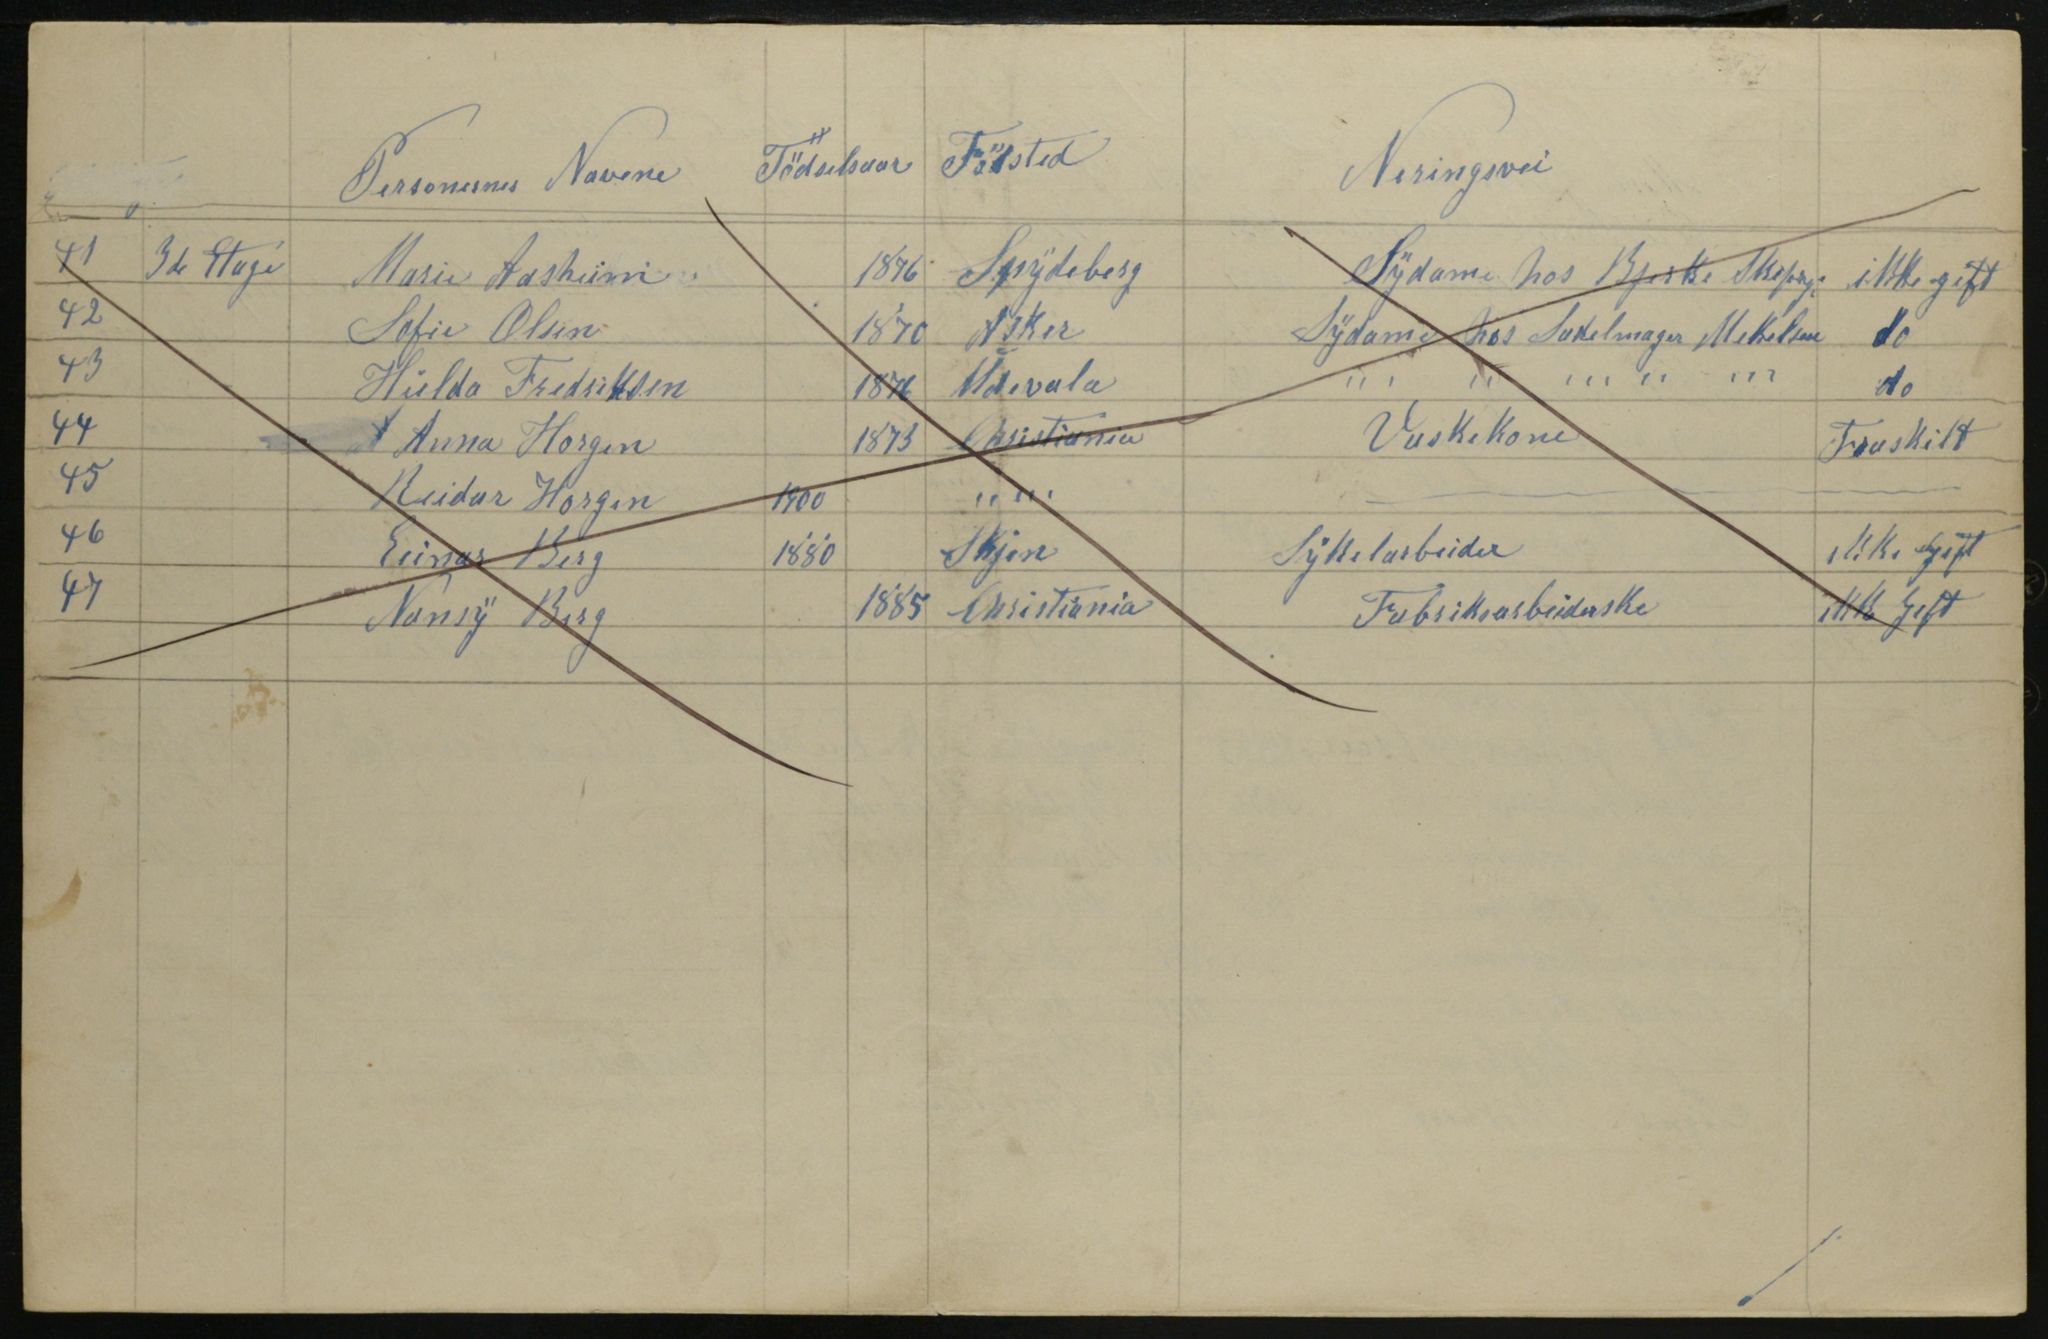 Personernes Navene Födselsaar Födsted Neringsvei
41 3de Etage Marie Aasheim 1876 Spydeberg Sÿdame hos Bjerke ikke gift
42 Sofie Olsen 1870 Asker Sÿdame hos Sadelmager do
43 Hilda Fredriksen 1876 Udevala " " " " " do
44 Anna Horgen 1873 Christiania Vaskekone Fraskilt
45 Reidar Horgen 1900 " "
46 Einar Berg 1880 Skjen Sÿkelarbeider ikke gift
47 Nansÿ Berg 1885 Christiania Fabrikarbeiderske ikke gift